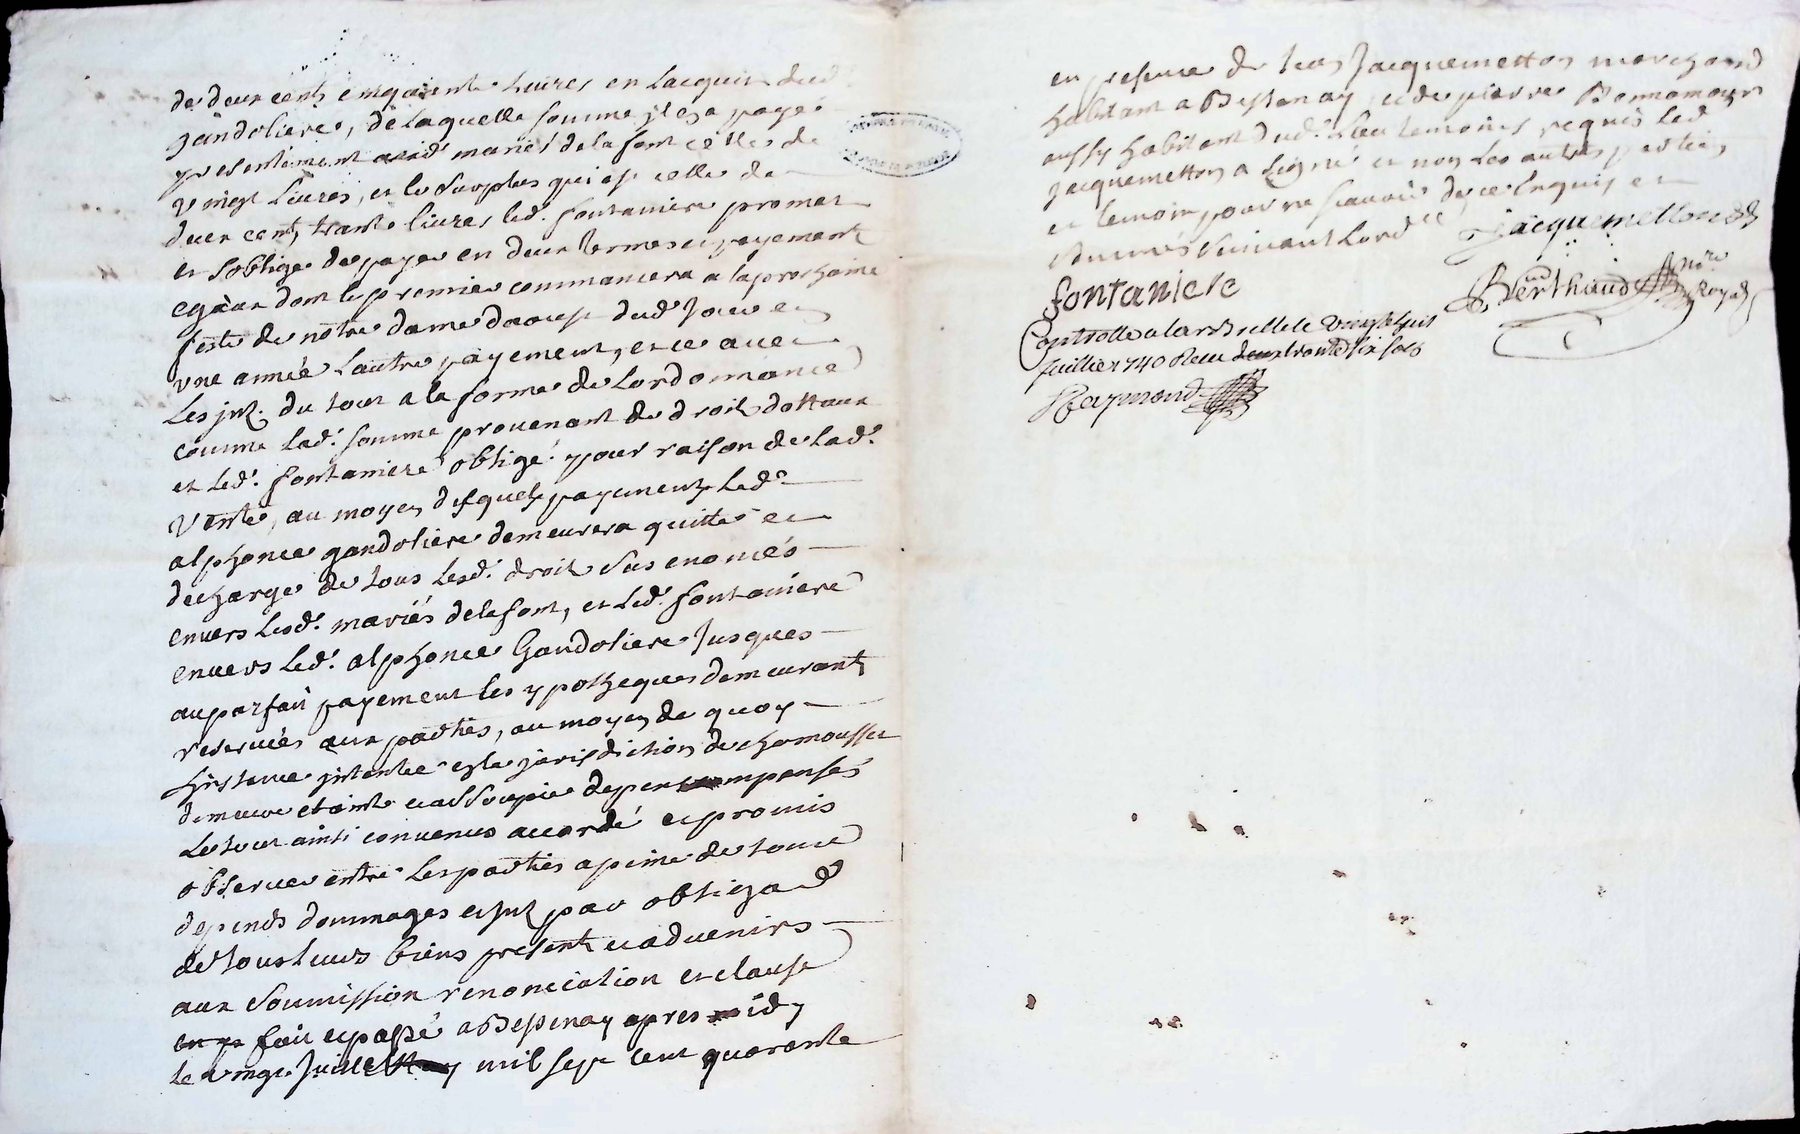 de deux cents cinquante livres en lacquit dud.
gandoliere, de laquelle somme il en a payé
presentement auxd. mariés delafont celle de
vingt livres, et le surplus qui est celle de
deux cents trante livres led. fontaniere promet
et soblige de payer en deux termes et payements
egaux dont le premier commancera a la prochaine
feste de notre dame daoust dud. jour en
une année lautre payement, et ce avec
les jnt. du tout a la forme de Lordonnance
comme lad. somme provenant de droits dottaux
et led. fontaniere obligé pour raison de lad.
vente, au moyen desquels payements led.
alphonce gandoliere demeurera quitte et
decharge de tous lesd. droits sus enoncés
envers lesd. mariés delafont, et led. fontaniere
envers led. alphonce Gandoliere jusques
au parfait payement les ypotheques demeurants
reservées aux parties, au moyen de quoy
Linstance jntentée en la jurisdiction de chamousset
demeure etainte et assoupie depens compensés
Le tout ainsi convenus accordé et promis
observer entre Les parties a peine de tous
depends dommages et jnt. par obligaon
de tous leurs biens presents et advenirs
aux soumission renonciation et clause
fait et passé a Bessenay apres midy
le vingt juillet mil sept cent quarante
en presence de Jacquemetton marchand
habitant a Bessenay, et de pierre Bonnamour
aussy habitant dud. lieu temoins requis led.
jacquemetton a signé et non les autres parties
et temoin pour ne scavoir de ce enquis et
sommés suivant Lord.ce
jacquemetton
fontaniere
Berthaud Nore Royal
Controllé a larbrelle le vingt huit
juillet 1740 Receu trante six sols
Raymond